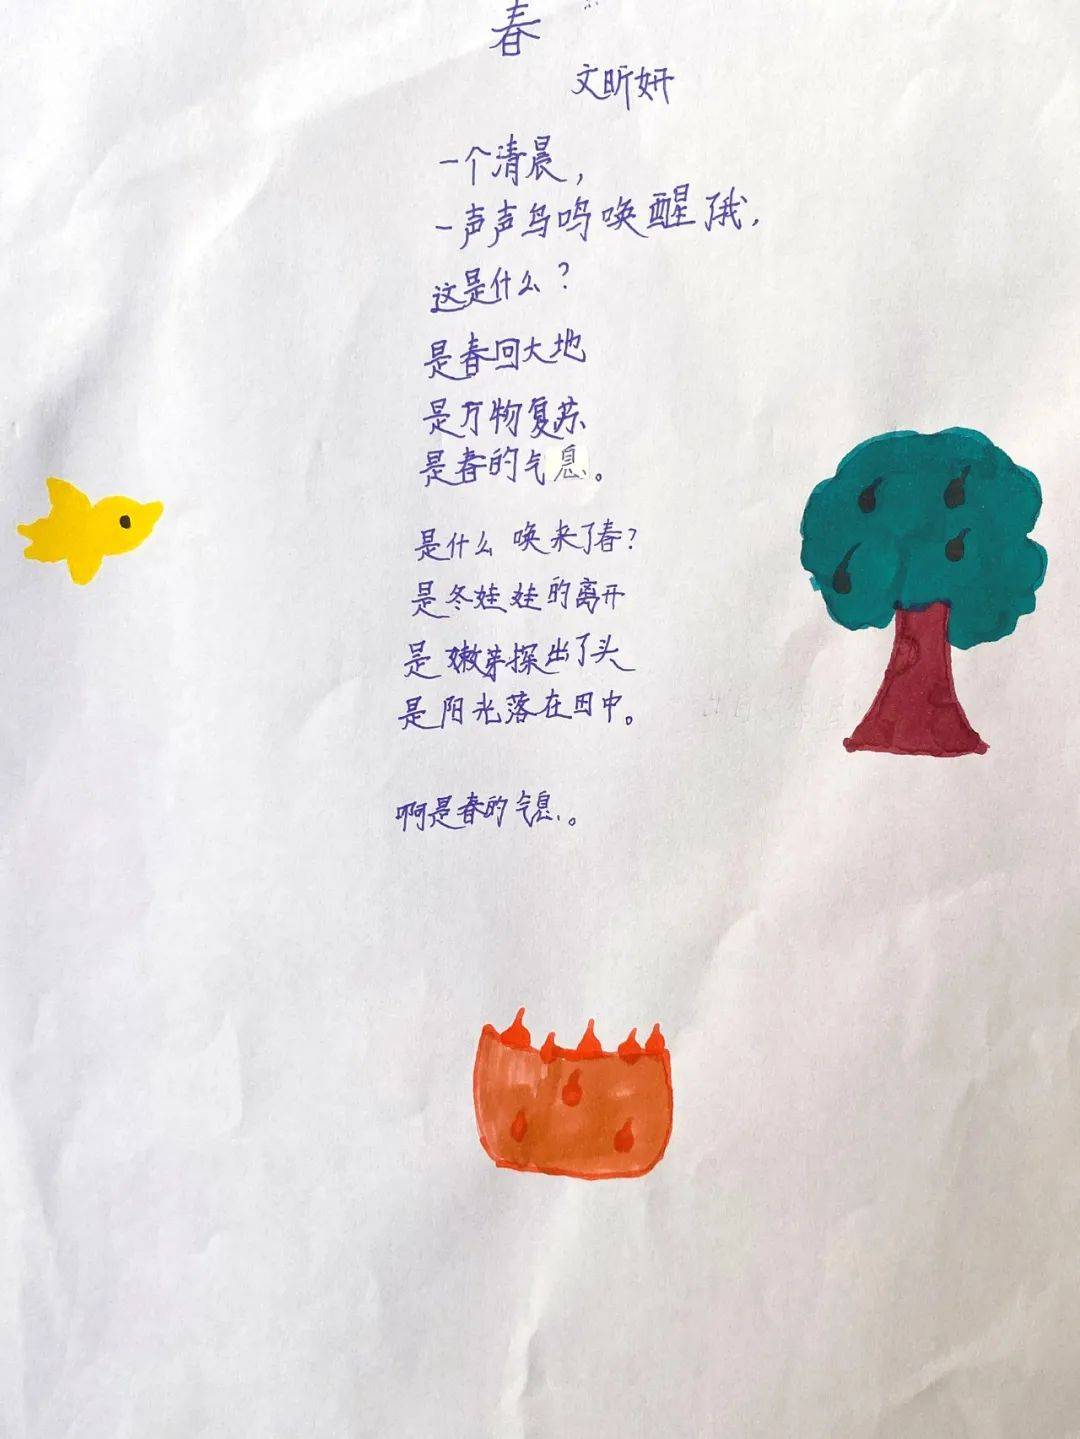 春
文昕妍
一个清晨，
一声声鸟鸣唤醒了我，
这是什么？
是春回大地
是万物复苏
是春的气息。
是什么唤来了春？
是冬娃娃的离开
是嫩芽探出了头
是阳光落在田中。
啊是春的气息。